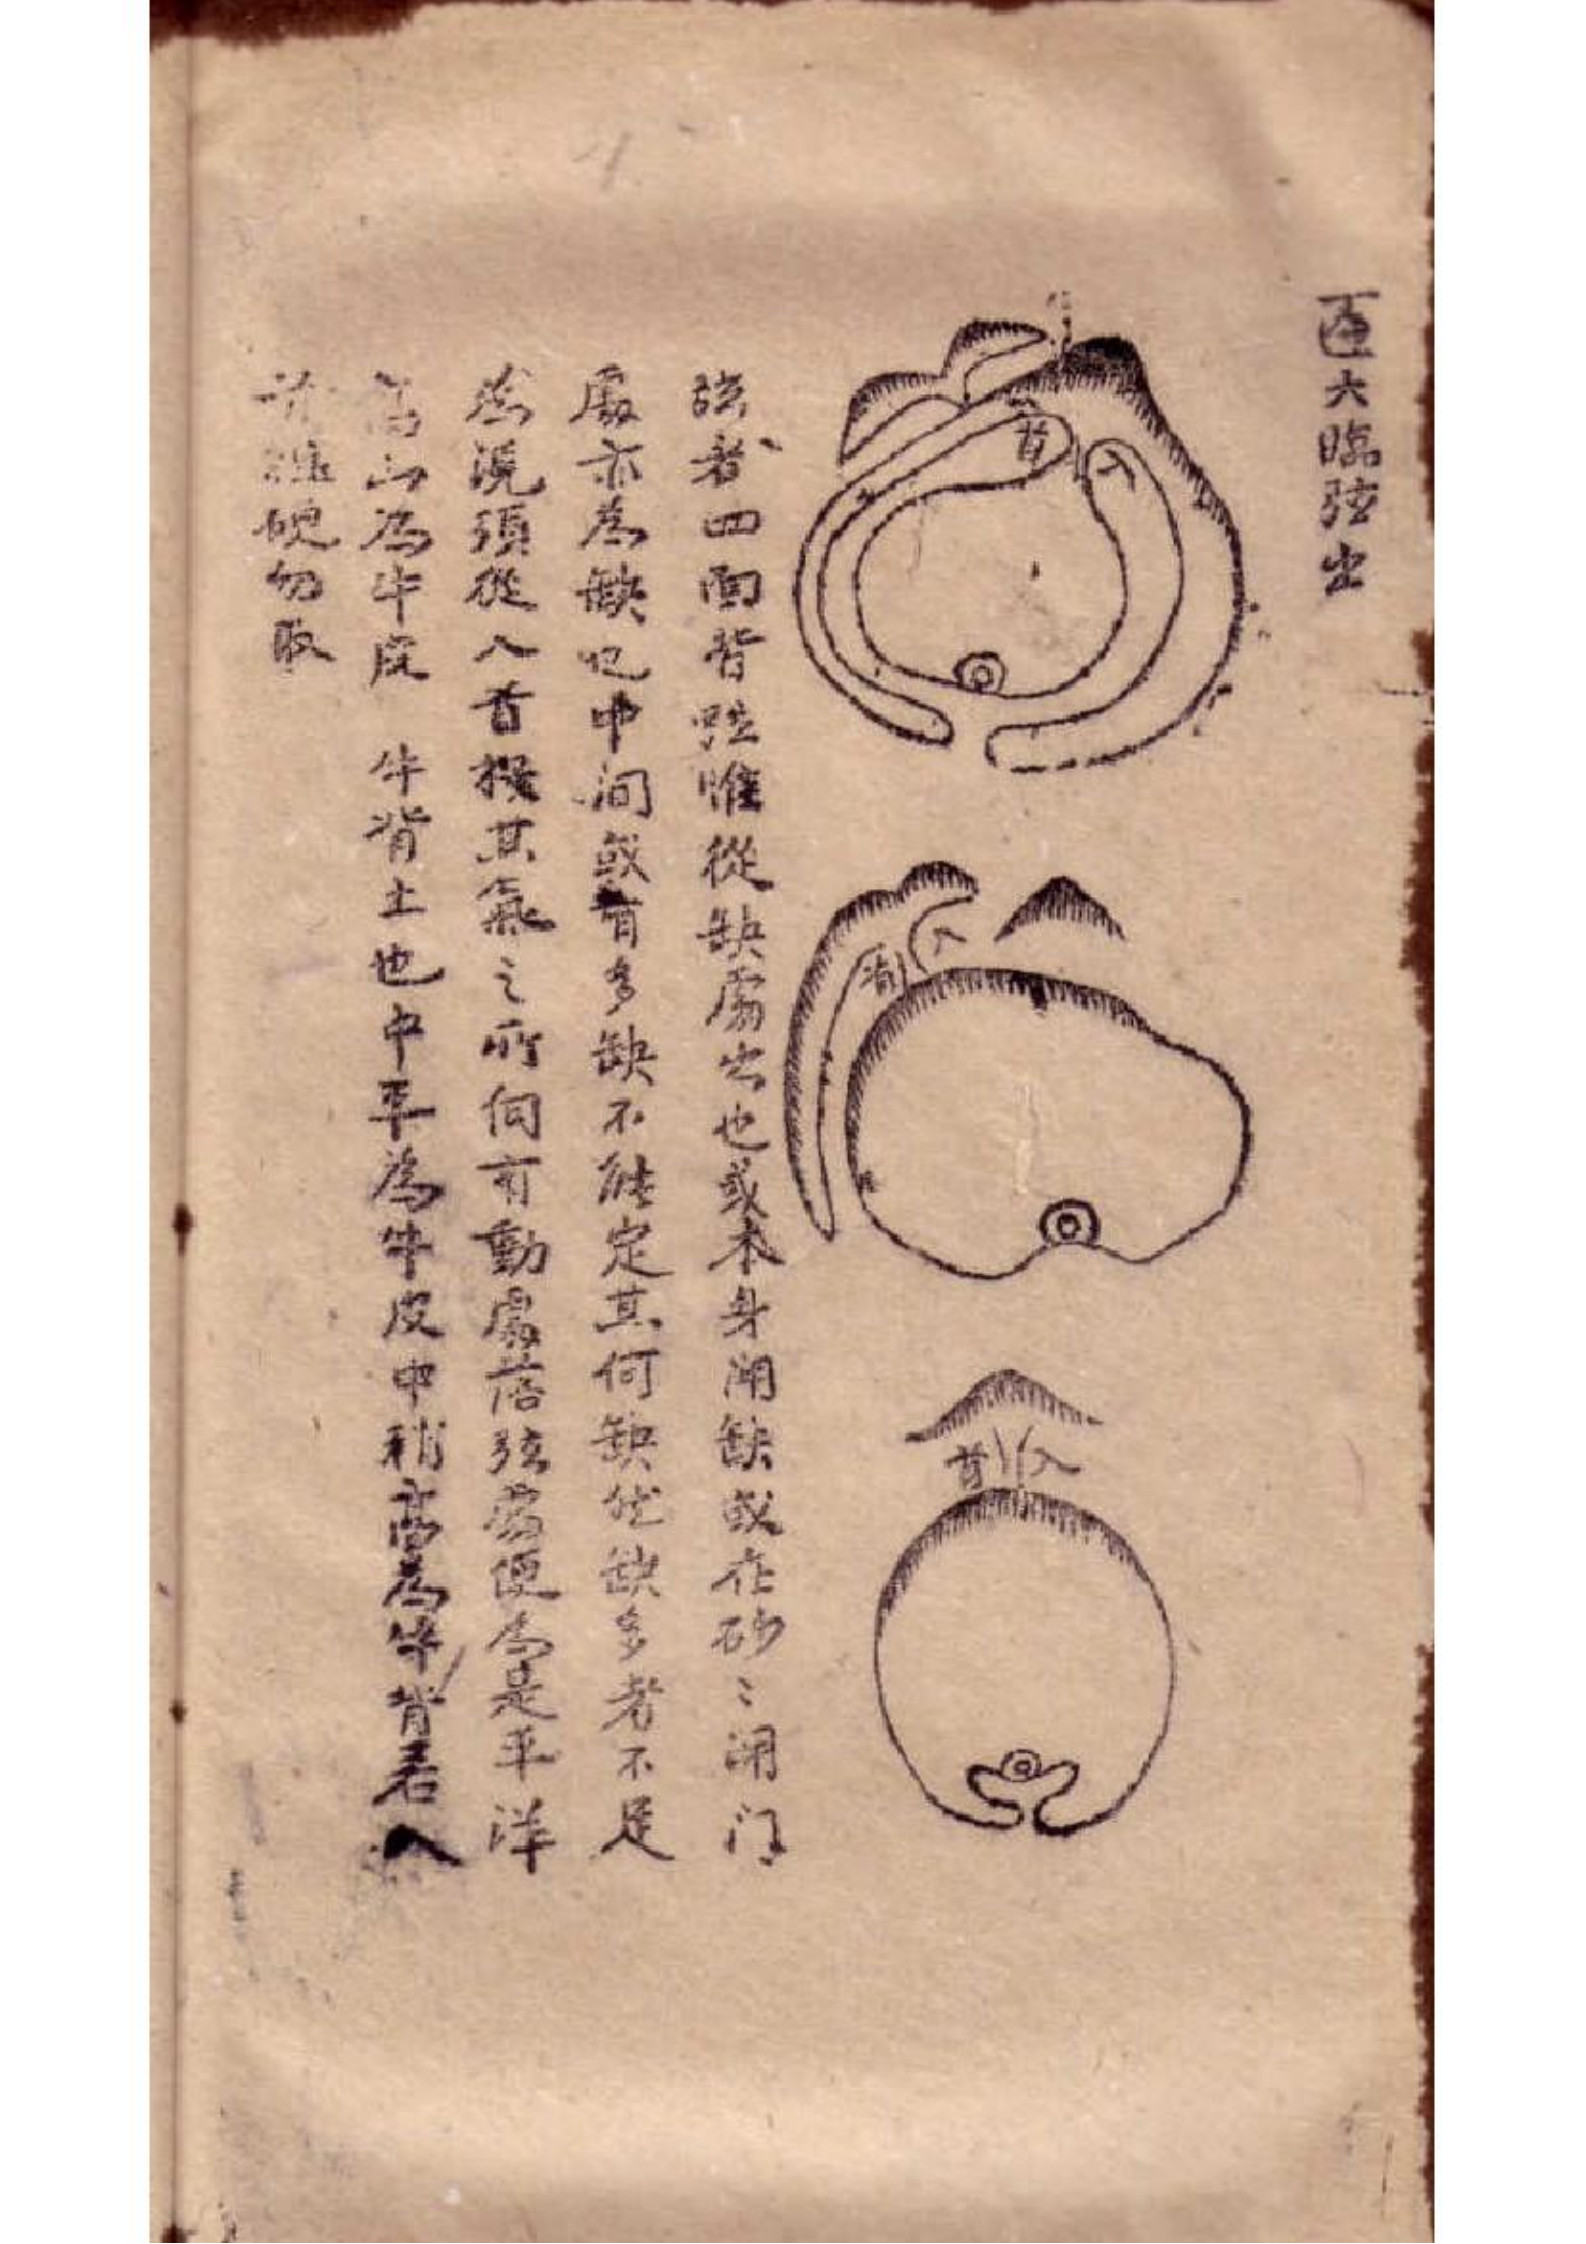 六臨弦出
首 入
首 入
首 入
弦者四面皆弦惟從缺處出也或本身開缺或在砂〻開门
處亦為缺也中间或有多缺不能定其何缺然缺多者不足
為説須從入首撥其氣之所向有動處落弦處便為是平洋
高山為牛皮 牛背土也中平為牛皮中稍高為牛背若入
首硬勿取